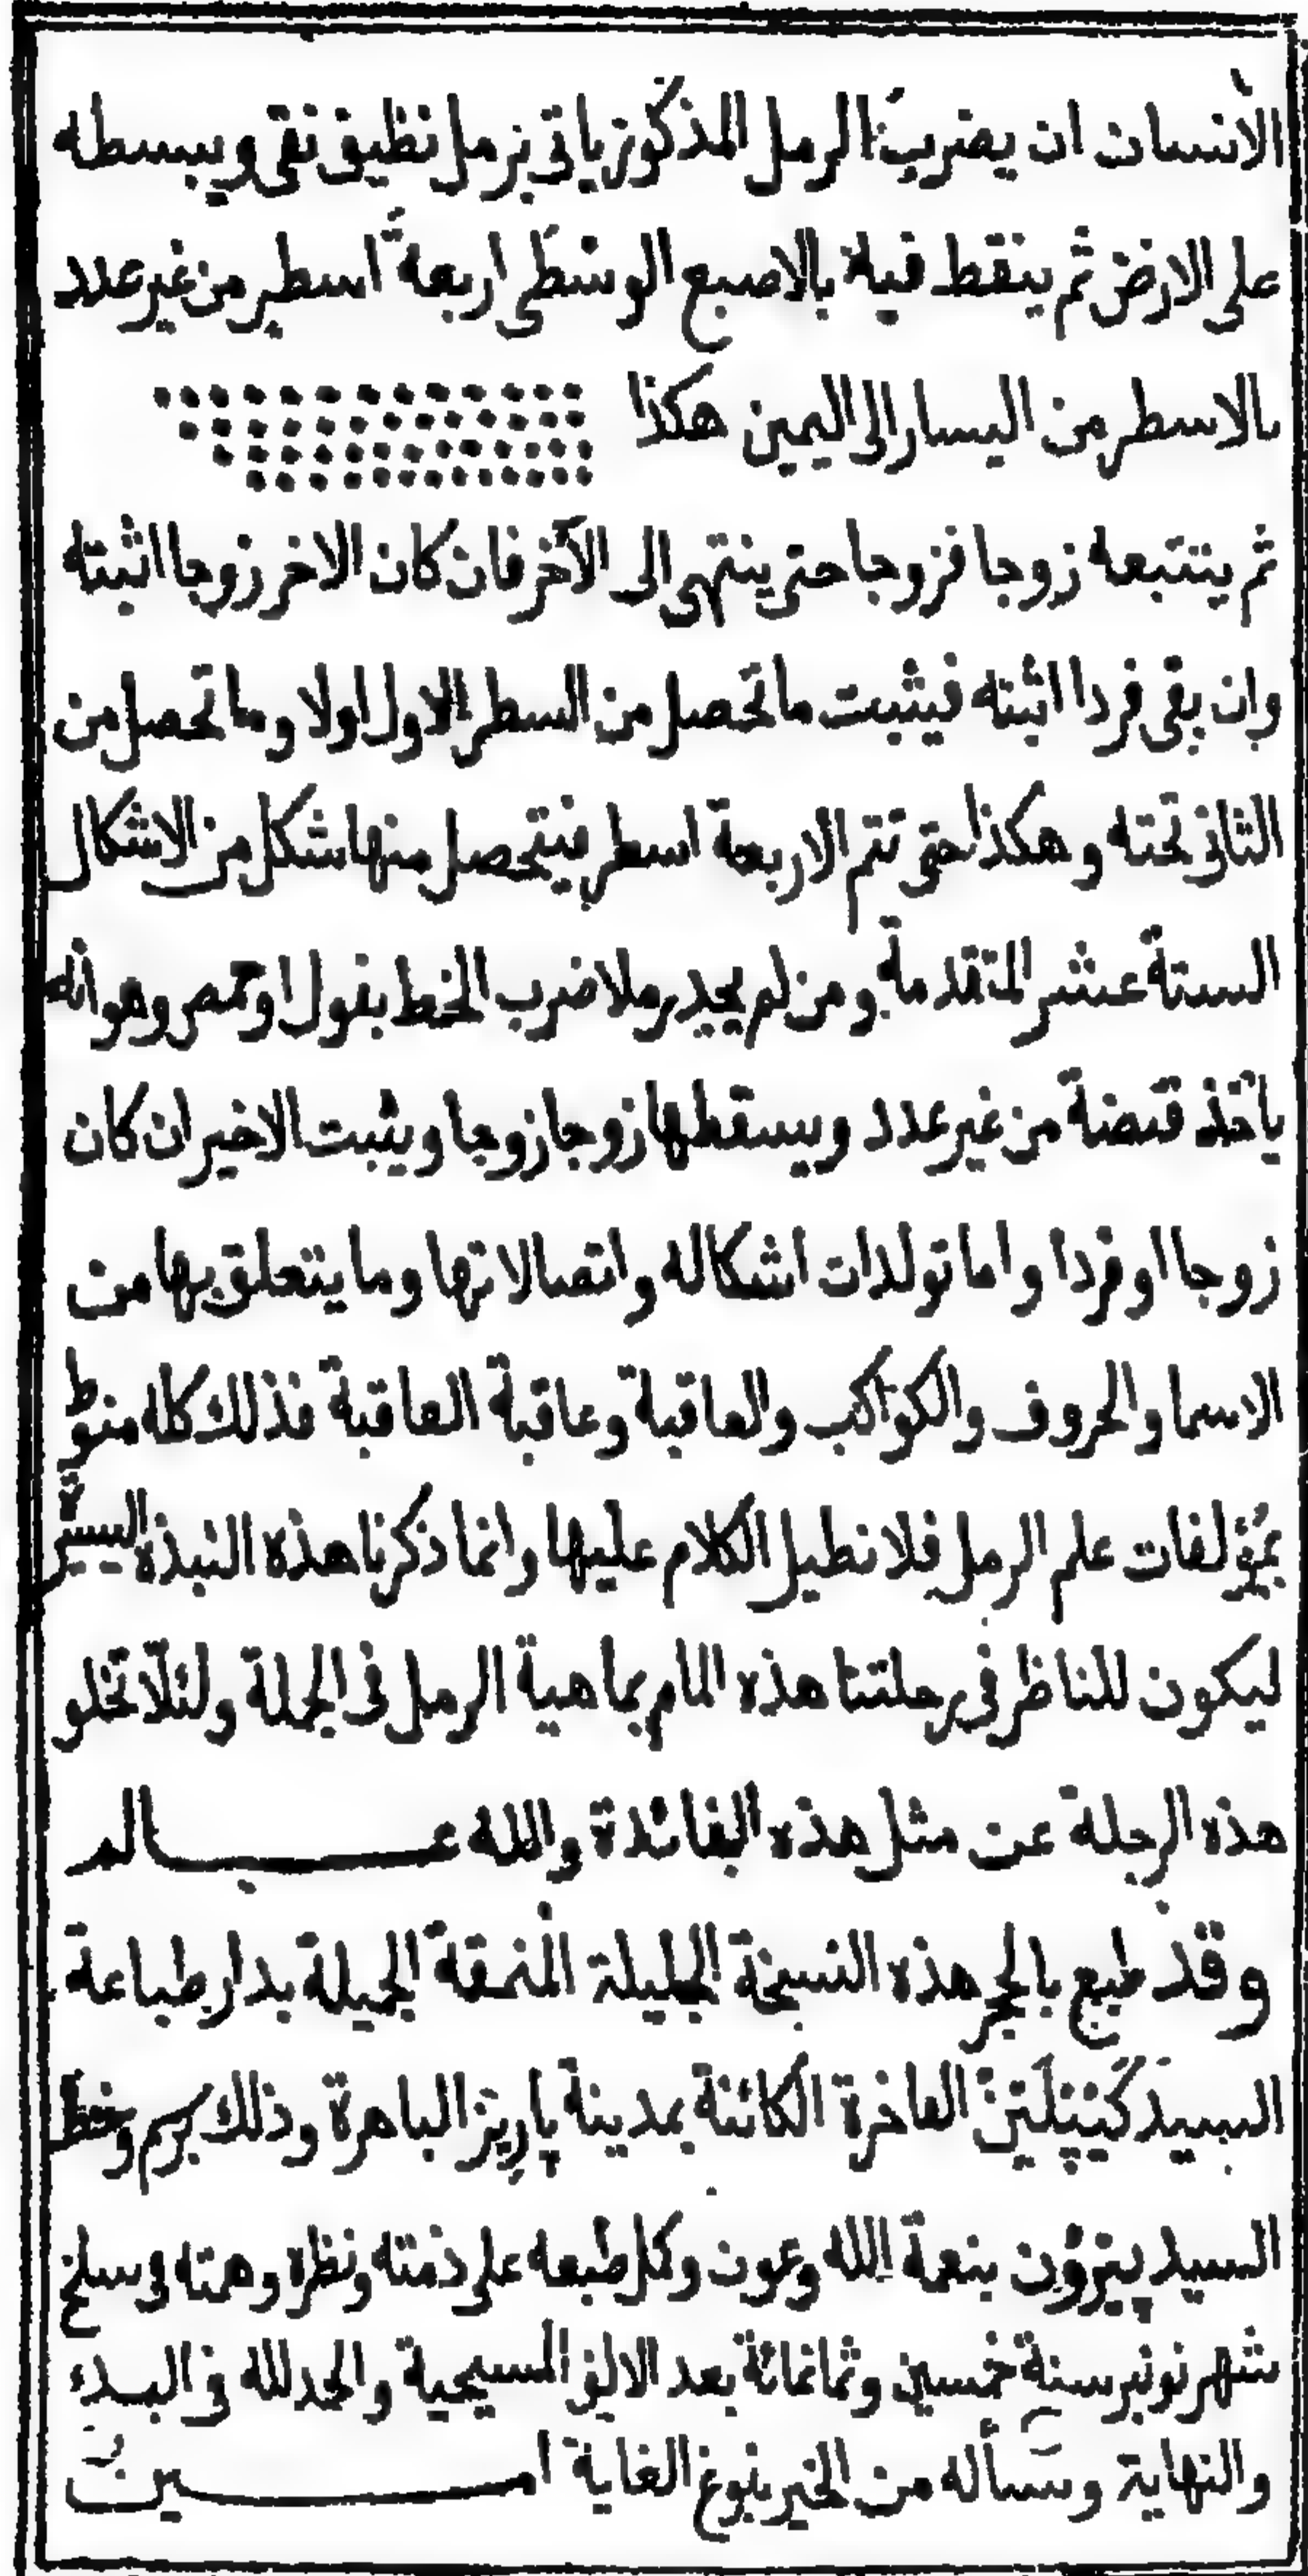 الانسان ان يضرب الرمل المذكور ياتى برمل نظيف نقى ويبسطه
على الارض ثم ينقط فيه بالاصبع الوسطى اربعة اسطر من غير عدد
بالاسطر من اليسار الى اليمين هكذا
ثم يتتبعه زوجا فزوجا حتى ينتهى الى الآخر فان كان الاخر زوجا اثبته
وان بقى فردا اثبته فيثبت ما تحصل من السطر الاول اولا وما تحصل من
الثانى تحته وهكذا حتى تتم الاربعة اسطر فيتحصل منها شكل من الاشكال
الستة عشر المتقدمة ومن لم يجد رملا ضرب الخط بفول او حمص وهو انه
ياخذ قبضة من غير عدد ويسقطها زوجا زوجا ويثبت الاخير ان كان
زوجا او فردا واما تولدات اشكاله واتصالاتها وما يتعلق بها من
الاسما والحروف والكواكب والعاقبة وعاقبة العاقبة فذلك كله منوط
بمؤلفات علم الرمل فلا نطيل الكلام عليها وانما ذكرنا هذه النبذة اليسيرة
ليكون للناظر فى رحلتنا هذه المام بماهية الرمل فى الجملة ولئلا تخلو
هذه الرحلة عن مثل هذه الفائدة والله عـــــالم
وقد طبع بالحجر هذه النسخة الجليلة المنمقة الجميلة بدار طباعة
السيد كَيْپلَيْنْ الفاخرة الكائنة بمدينة پاريز الباهرة وذلك برسم وخط
السيد پيرؤن بنعمة الله وعون وكمل طبعه على ذمته ونظره وهمته فى سلخ
شهر نونبر سنة خمسين وثمانمائة بعد الالف المسيحية والحمد لله فى البدء
والنهاية ونسأله من الخير بلوغ الغاية امـــــين